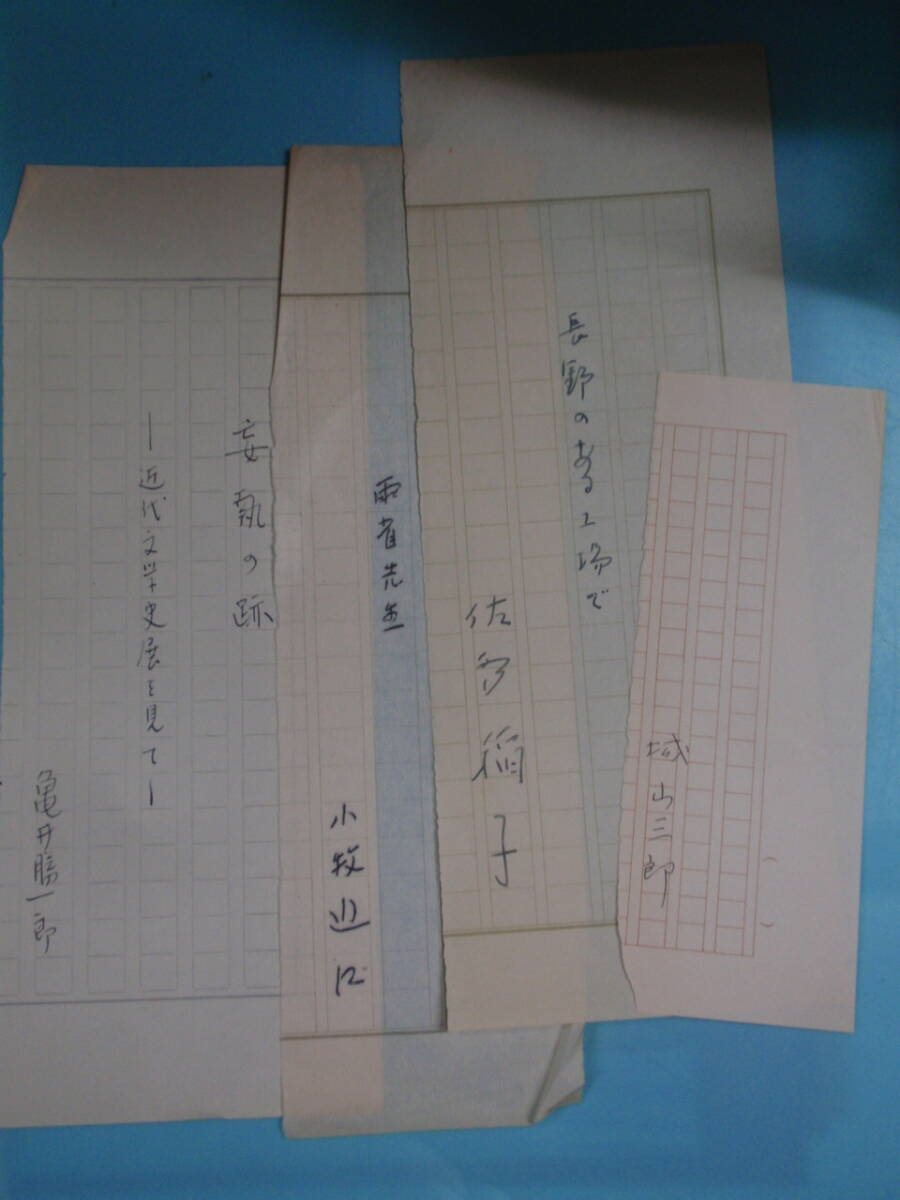 城山三郎
長野のある工場で
佐多稲子
雨雀先生
小牧近江
妄執の跡
―近代文学史展を見て―
亀井勝一郎